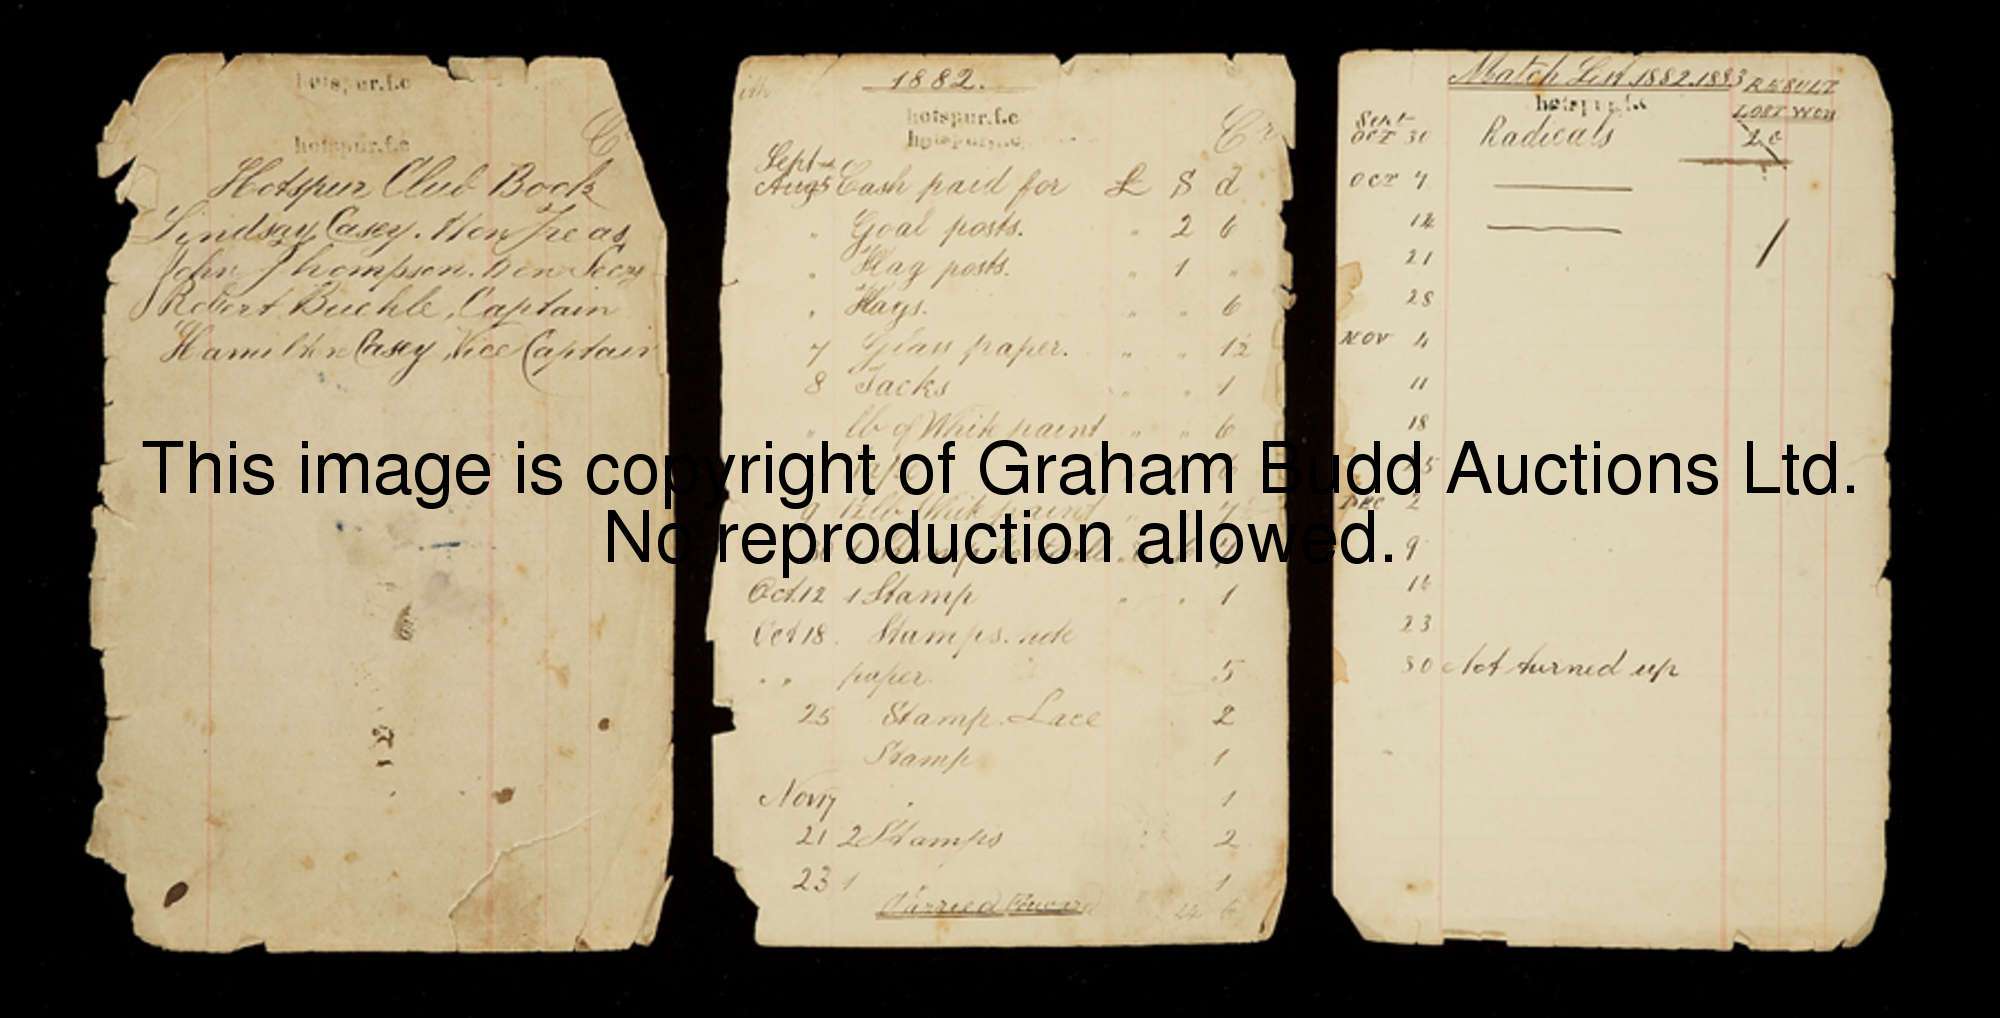 hotspur.f.c
hotspur.f.c
Hotspur Club Book
Lindsay Casey. Hon Treas
John Thompson. Hon Secry
Robert Buckle, Captain
Hamilton Casey, Vice Captain
1882.
hotspur.f.c
hotspur.f.c
Cr
Sept
Aug 5 Cash paid for £ S d
" Goal posts. " 2 6
" Flag posts. " 1 "
" Flags. " " 6
7 Glass paper. " " 1½
8 Tacks " " 1
" lb of White paint " " 6
9 lb White paint
Oct. 12 1 Stamp " " 1
Oct 18. Stamps. note
" " paper. 5
25 Stamp. Lace 2
Stamp 1
Nov 17 " 1
21 2 Stamps 2
23 1 " 1
Carried Forward
Match List 1882.1883 RESULT
hotspur.f.c
LOST WON
Sept
OCT 30 Radicals 2 0
OCT 7
14
21
28
NOV 4
11
18
25
DEC 2
9
16
23
30 Not turned up
This image is copyright of Graham Budd Auctions Ltd.
No reproduction allowed.